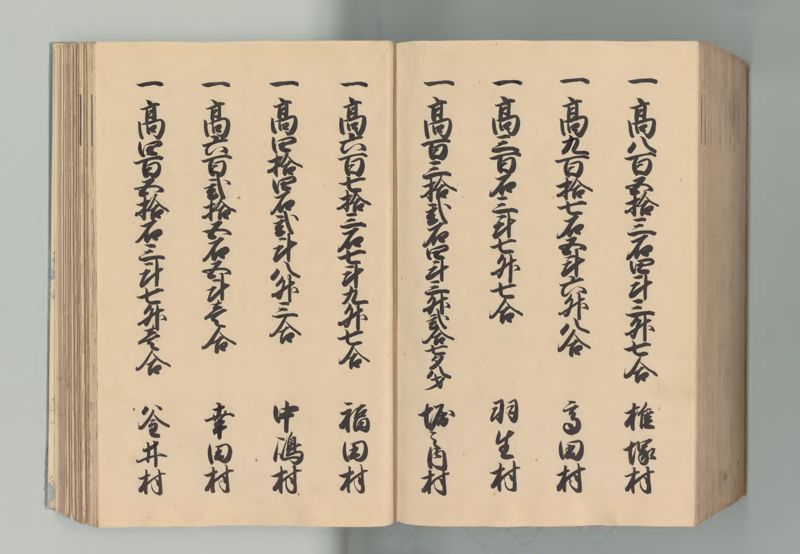 一 高八百五拾三石四斗三升七合 椎塚村
一 高九百拾七石五斗六升八合 高田村
一 高三百石三斗七升七合 羽生村
一 高百三拾弐石四斗三升弐合七夕八才 堀之内村
一 高六百七拾三石七斗九升七合 福田村
一 高四拾四石弐斗八升三合 中嶋村
一 高六百弐拾五石五斗壱合 幸田村
一 高四百五拾石三斗七升壱合 釜井村